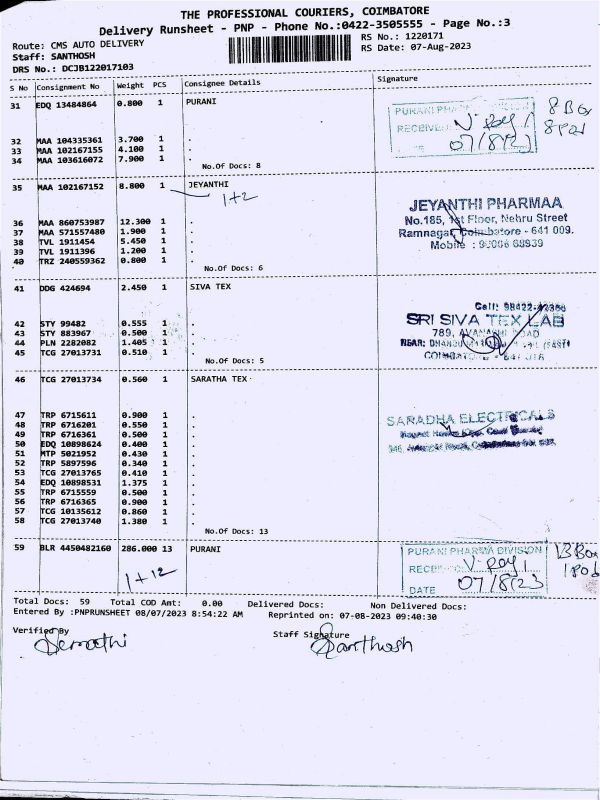 THE PROFESSIONAL COURIERS, COIMBATORE
Delivery Runsheet - PNP - Phone No.:0422-3505555 - Page No.:3
Route: CMS AUTO DELIVERY
RS No.: 1220171
Staff: SANTHOSH
RS Date: 07-Aug-2023
DRS No.: DCJB122017103
S No Consignment No Weight PCS Consignee Details Signature
31 EDQ 13484864 0.800 1 PURANI
PURANI PHARMA DIVISION 8 Box
RECEIVED V. Roy 1
07/8/23
32 MAA 104335361 3.700 1 .
33 MAA 102167155 4.100 1 .
34 MAA 103616072 7.900 1 .
No.Of Docs: 8
35 MAA 102167152 8.800 1 JEYANTHI
1+2
JEYANTHI PHARMAA
No.185, 1st Floor, Nehru Street
Ramnagar, Coimbatore - 641 009.
Mobile :
36 MAA 860753987 12.300 1 .
37 MAA 571557480 1.900 1 .
38 TVL 1911454 5.450 1 .
39 TVL 1911396 1.200 1 .
40 TRZ 240559362 0.800 1 .
No.Of Docs: 6
41 DDG 424694 2.450 1 SIVA TEX
Cell: 98422-
SRI SIVA TEX LAB
789, AVANASHI ROAD
NEAR:
COIMBATORE - 641 018
42 STY 99482 0.555 1 .
43 STY 883967 0.500 1 .
44 PLN 2282082 1.405 1 .
45 TCG 27013731 0.510 1 .
No.Of Docs: 5
46 TCG 27013734 0.560 1 SARATHA TEX
SARADHA ELECTRICALS
47 TRP 6715611 0.900 1 .
48 TRP 6716201 0.550 1 .
49 TRP 6716361 0.500 1 .
50 EDQ 10898624 0.400 1 .
51 MTP 5021952 0.430 1 .
52 TRP 5897596 0.340 1 .
53 TCG 27013765 0.410 1 .
54 EDQ 10898531 1.375 1 .
55 TRP 6715559 0.500 1 .
56 TRP 6716365 0.900 1 .
57 TCG 10135612 0.860 1 .
58 TCG 27013740 1.380 1 .
No.Of Docs: 13
59 BLR 4450482160 286.000 13 PURANI
1+12
PURANI PHARMA DIVISION 13 Box
RECEIVED V. Roy 1
DATE 07/8/23
Total Docs: 59 Total COD Amt: 0.00 Delivered Docs: Non Delivered Docs:
Entered By :PNPRUNSHEET 08/07/2023 8:54:22 AM Reprinted on: 07-08-2023 09:40:30
Verified By
Staff Signature
Santhosh